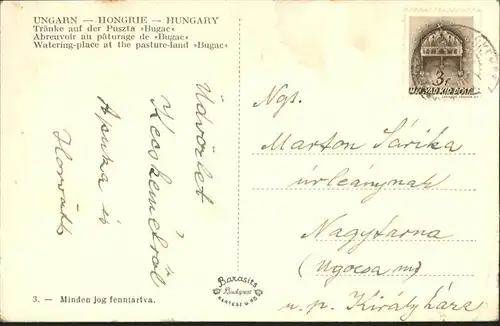 UNGARN — HONGRIE — HUNGARY
Tränke auf der Puszta »Bugac«
Abreuvoir au pâturage de »Bugac«
Watering-place at the pasture-land »Bugac«
Üdvözlet
Kecskemétről
Apuka és
Horváth
3. — Minden jog fenntartva.
Barasits
Budapest
3f
MAGYAR KIR. POSTA
Ngs.
Marton Sárika
úrleánynak
Nagytarna
(Ugocsa m)
u. p. Királyháza